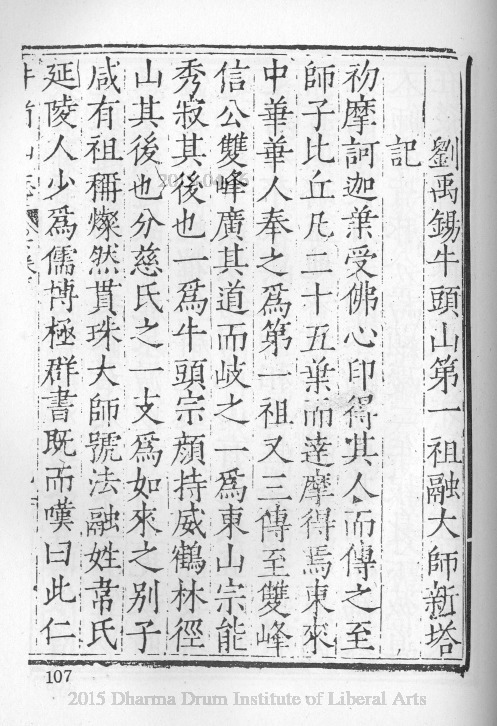 劉禹錫牛頭山第一祖融大師新塔
記
初摩訶迦葉受佛心印得其人而傳之至
師子比丘凡二十五葉而達摩得焉東來
中華華人奉之為第一祖又三傳至雙峰
信公雙峰廣其道而岐之一為東山宗能
秀寂其後也一為牛頭宗顔持威鶴林徑
山其後也分慈氏之一支為如來之别子
咸有祖稱燦然貫珠大師號法融姓韋氏
延陵人少為儒博極群書既而嘆曰此仁
107
2015 Dharma Drum Institute of Liberal Arts